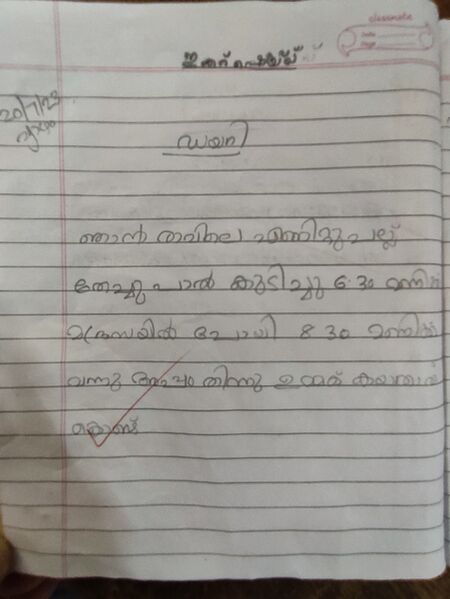 classmate
Date
Page
20/7/23
വ്യാഴം
ഡയറി
ഞാൻ രാവിലെ എണീറ്റു പല്ല്
തേച്ചു പാൽ കുടിച്ചു 6.30 മണിക്ക്
മദ്രസയിൽ പോയി 8 30 മണിക്ക്
വന്നു അപ്പം തിന്നു